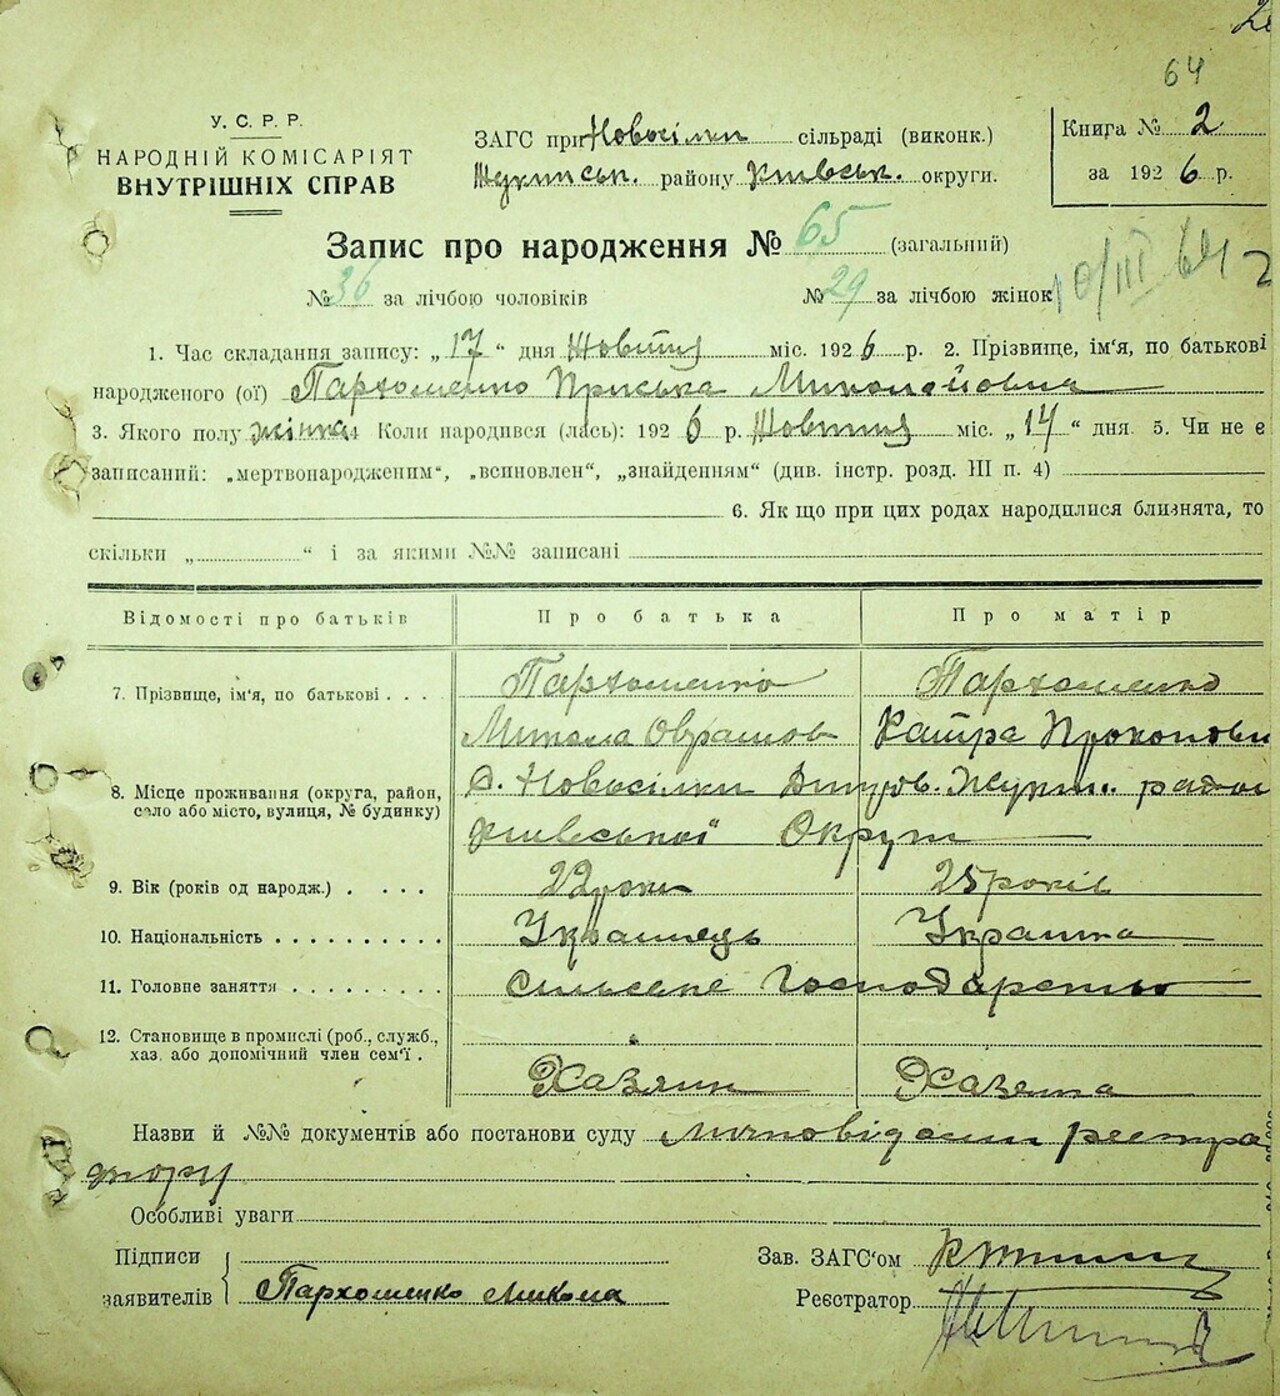 64
У. С. Р. Р.
НАРОДНІЙ КОМІСАРІЯТ
ВНУТРІШНІХ СПРАВ
ЗАГС при Новосілки сільраді (виконк.)
району Київськ. округи.
Книга № 2
за 1926 р.
Запис про народження № 65 (загальний)
№ 36 за лічбою чоловіків № 29 за лічбою жінок
1. Час складання запису: „17“ дня Жовтня міс. 1926 р. 2. Прізвище, ім'я, по батькові
народженого (ої) Пархоменко Приська Миколайовна
3. Якого полу жінка 4 Коли народився (лась): 1926 р. Жовтня міс. „14“ дня. 5. Чи не є
записаний: „мертвонародженим“, „всиновлен“, „знайденням“ (див. інстр. розд. III п. 4)
6. Як що при цих родах народилися близнята, то
скільки „ “ і за якими №№ записані
Відомості про батьків Про батька Про матір
7. Прізвище, ім'я, по батькові . . . Пархоменко Пархоменко
Микола Оврамов Катра Прокопови
8. Місце проживання (округа, район, село або місто, вулиця, № будинку) с. Новосілки район
Київської Округи
9. Вік (років од народж.) . . . . 22 роки 25 років
10. Національність . . . . . . . . . . Українець Українка
11. Головне заняття . . . . . . . . . Сільське Господарство
12. Становище в промислі (роб., служб., хаз. або допомічний член сем'ї . Хазяин Хазяйка
Назви й №№ документів або постанови суду реєстра
тору
Особливі уваги
Підписи
заявителів Пархоменко Микола
Зав. ЗАГС'ом
Реєстратор